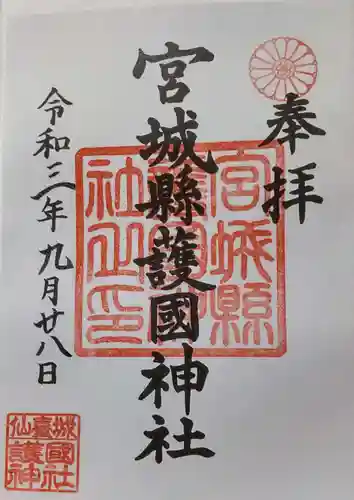 奉拝
宮城縣護國神社
令和三年九月廿八日
宮城縣
護國神
社之印
仙臺城
護國神社